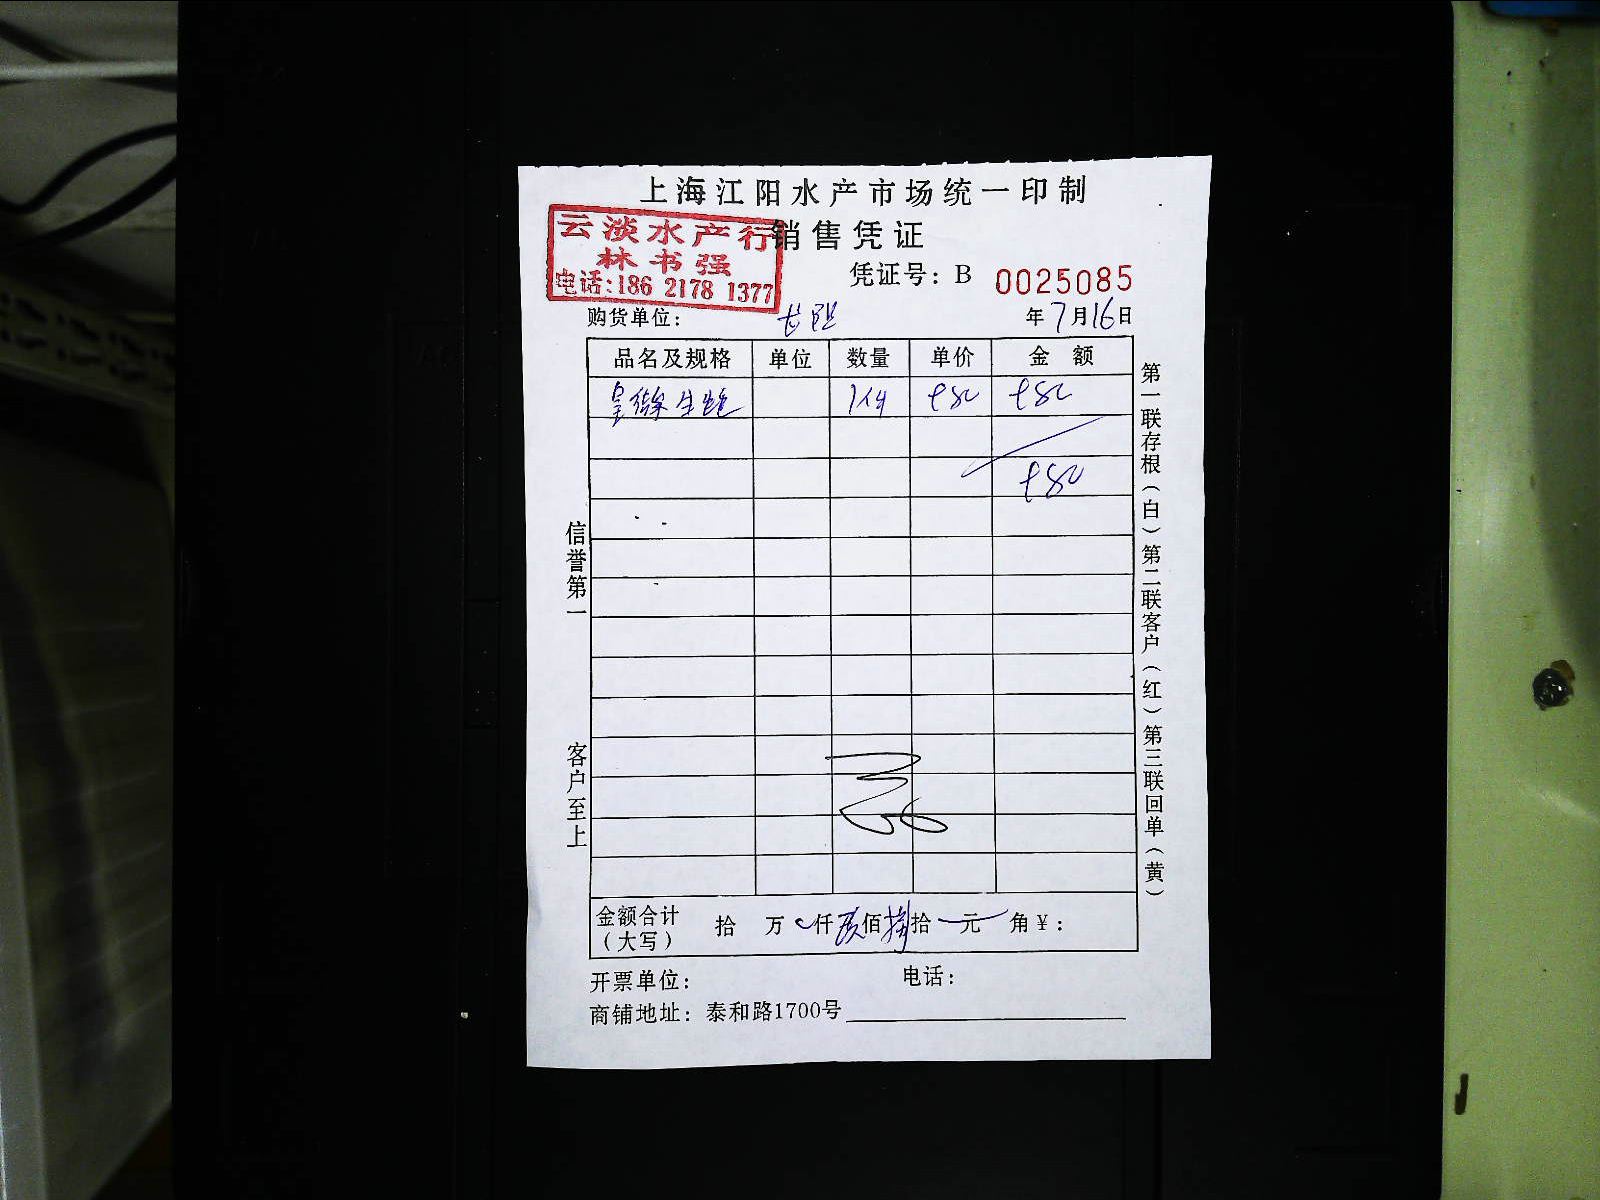 上海江阳水产市场统一印制
云淡水产行
林书强
电话:186 2178 1377
销售凭证
凭证号：B 0025085
购货单位： 长阳 年7月16日
品名及规格 单位 数量 单价 金额
生蚝 1件 580 580
580
信誉第一
客户至上
第一联存根（白）第二联客户（红）第三联回单（黄）
金额合计（大写） 拾 万 仟伍佰捌拾 元 角¥：
开票单位： 电话：
商铺地址：泰和路1700号